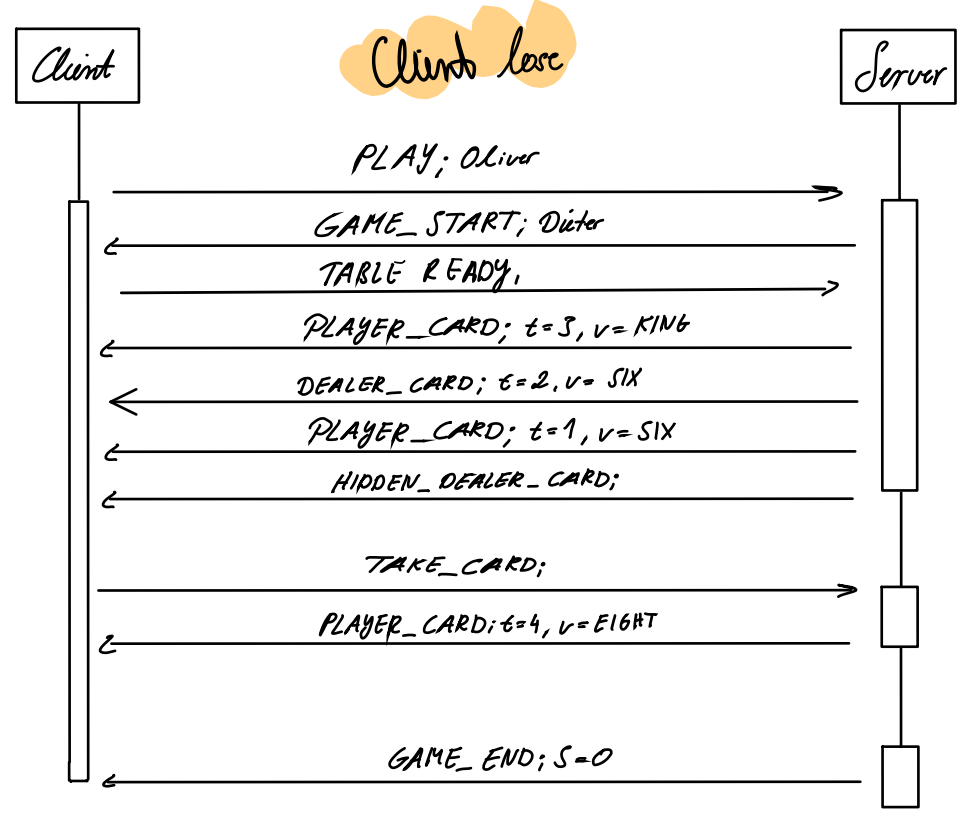 Client
Client lose
Server
PLAY; Oliver
GAME_START; Dieter
TABLE READY;
PLAYER_CARD; t=3, v=KING
DEALER_CARD; t=2, v=SIX
PLAYER_CARD; t=1, v=SIX
HIDDEN_DEALER_CARD;
TAKE_CARD;
PLAYER_CARD; t=4, v=EIGHT
GAME_END; S=0